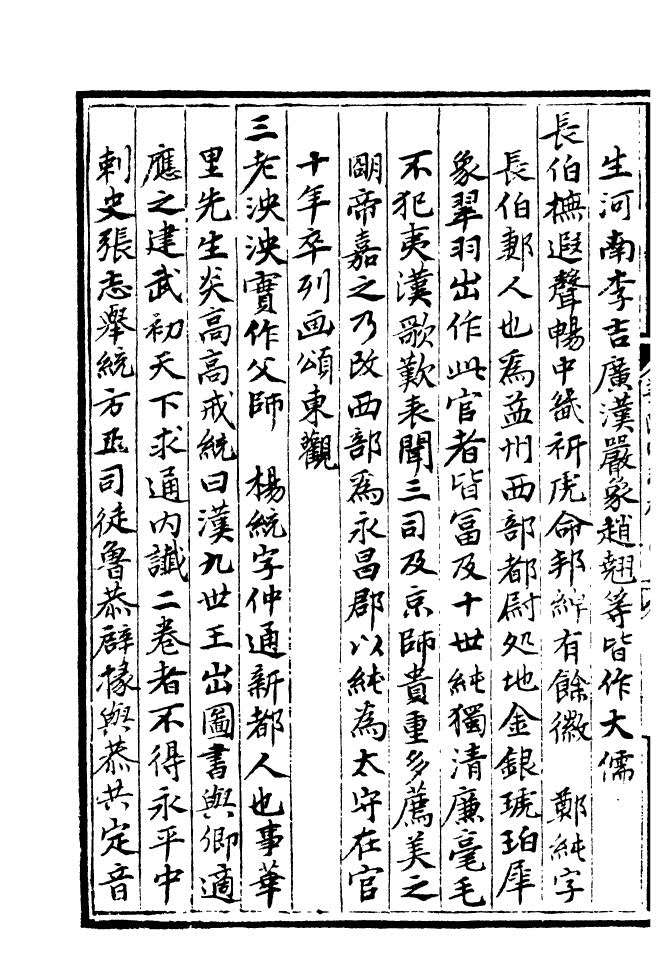 生河南李吉廣漢嚴象趙翹等皆作大儒
長伯撫遐聲暢中畿祈虎命邦綽有餘徽　鄭純字
長伯郪人也爲益州西部都尉処地金銀琥珀犀
象翠羽出作此官者皆冨及十世純獨清廉毫毛
不犯夷漢歌歎表聞三司及京師貴重多薦美之
朙帝嘉之乃改西部爲永昌郡以純為太守在官
十年卒列画頌東觀
三老泱泱實作父師　楊統字仲通新都人也事華
里先生炎高高戒統曰漢九世王出圖書與卿適
應之建武初天下求通内讖二卷者不得永平中
刺史張志舉統方正司徒魯恭辟掾與恭共定音